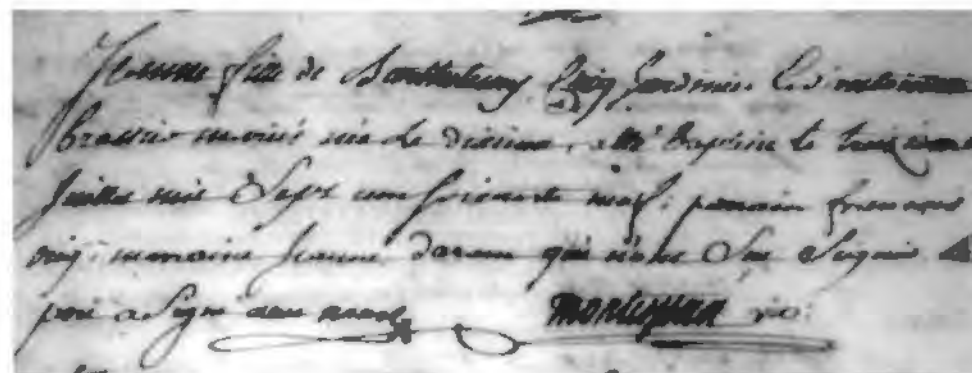 Jeanne fille de Barthelemy puig jardinier &
brassier mariés née le dixieme, a été baptisée le treizieme
Juillet mil Sept cens soixante neuf; parrain francois
puig; marraine Jeanne daram qui n'a sçu Signer le
pere a Signé avec nous vic: